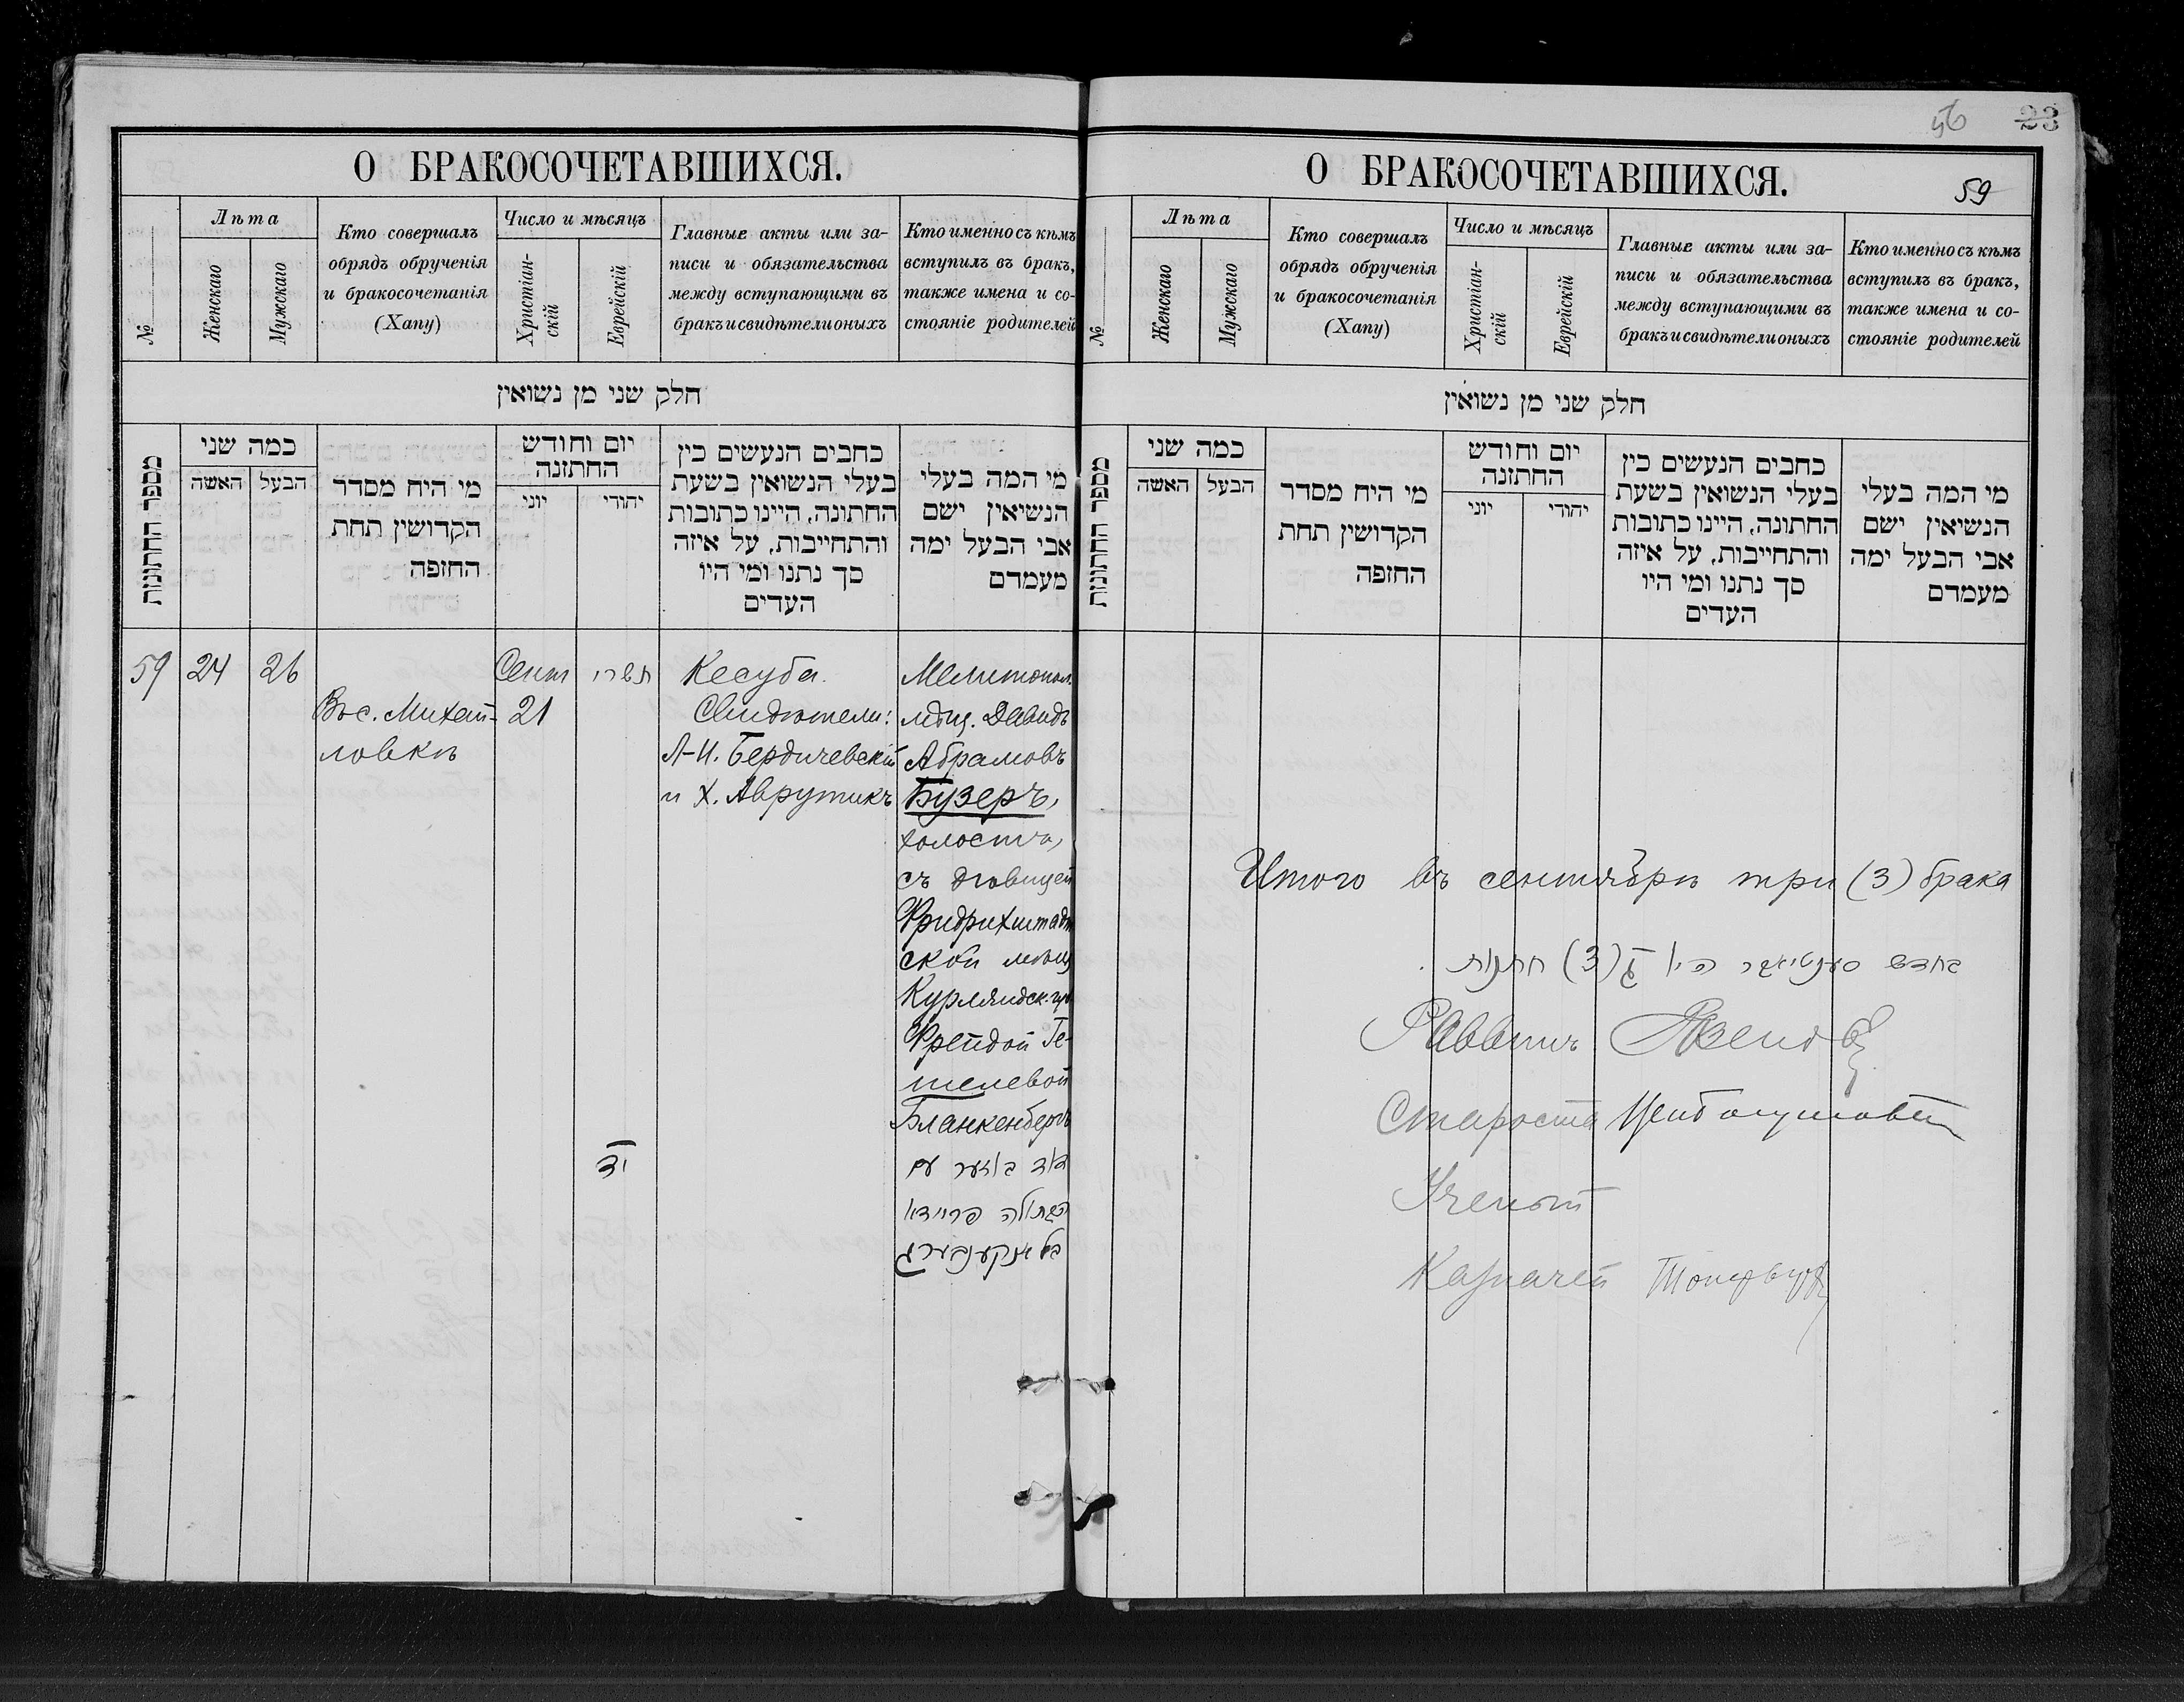 О БРАКОСОЧЕТАВШИХСЯ.
№
Лѣта
Женскаго
Мужскаго
Кто совершалъ
обрядъ обрученія
и бракосочетанія
(Хапу)
Число и мѣсяцъ
Христіан-
скій
Еврейскій
Главные акты или за-
писи и обязательства
между вступающими въ
бракъ и свидѣтели оныхъ
Кто именно съ кѣмъ
вступилъ въ бракъ,
также имена и со-
стояніе родителей
חלק שני מן נשואין
מספר החתונות
כמה שני
האשה
הבעל
מי היח מסדר
הקדושין תחת
החזפה
יום וחודש
החתזנה
יוני
יהודי
כחבים הנעשים כין
בעלי הנשואין בשעת
החתונה, היינו כתובות
והתחייבות, על איזה
סך נתנו ומי היו
העדים
מי המה בעלי
הנשיאין ישם
אבי הבעל ימה
מעמדם
59
24
26
Въ с. Михай-
ловкѣ
Сент
21
תשרי
יד
Кесуба.
Свидѣтели:
Л-И. Бердичевскій
и Х. Аврутикъ
Мелитопол.
мѣщ. Давидъ
Абрамовъ
Бузеръ,
холостъ,
съ дѣвицей
Фридрихштадт
ской мѣщ
Курляндск. губ
Фрейдой Ге-
шелевой
Бланкенбергъ
דוד בוזער עם
הבתולה פריידא
בלאנקענבערג
56
23
О БРАКОСОЧЕТАВШИХСЯ.
59
№
Лѣта
Женскаго
Мужскаго
Кто совершалъ
обрядъ обрученія
и бракосочетанія
(Хапу)
Число и мѣсяцъ
Христіан-
скій
Еврейскій
Главные акты или за-
писи и обязательства
между вступающими въ
бракъ и свидѣтели оныхъ
Кто именно съ кѣмъ
вступилъ въ бракъ,
также имена и со-
стояніе родителей
חלק שני מן נשואין
מספר החתונות
כמה שני
האשה
הבעל
מי היח מסדר
הקדושין תחת
החזפה
יום וחודש
החתזנה
יוני
יהודי
כחבים הנעשים כין
בעלי הנשואין בשעת
החתונה, היינו כתובות
והתחייבות, על איזה
סך נתנו ומי היו
העדים
מי המה בעלי
הנשיאין ישם
אבי הבעל ימה
מעמדם
Итого въ сентябрѣ три (3) брака
בחדש סענטיאבר היו ג (3) חתנות
Раввинъ
Староста
Ученый
Казначей